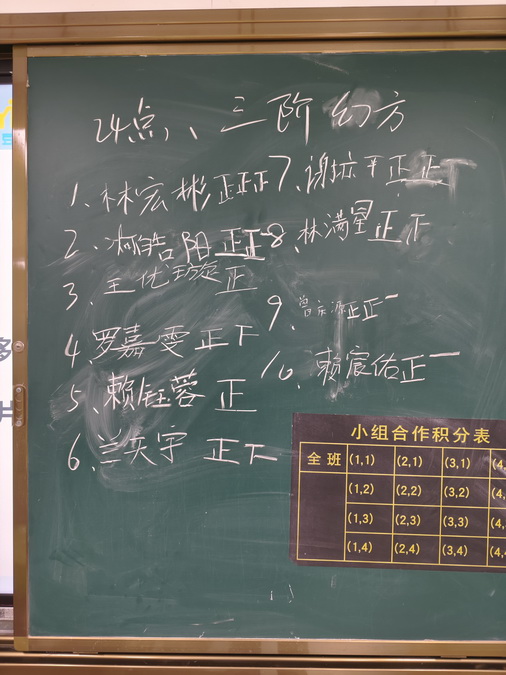 24点、三阶幻方
1、林宏彬 正正正
2、 皓阳 正正一
3、王优璇 正
4、罗嘉雯 正下
5、赖钰蓉 正
6、兰天宇 正下
7、 正正丅
8、林满星 正下
9、曾 源 正正一
10、赖宸佑 正一
小组合作积分表
全班 (1,1) (2,1) (3,1) (4,
(1,2) (2,2) (3,2) (4,
(1,3) (2,3) (3,3) (4,
(1,4) (2,4) (3,4) (4,